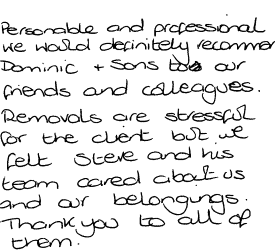 Personable and professional
we would definitely recommen
Dominic + Sons to our
friends and colleagues.
Removals are stressful
for the client but we
felt Steve and his
team cared about us
and our belongings.
Thank you to all of
them.